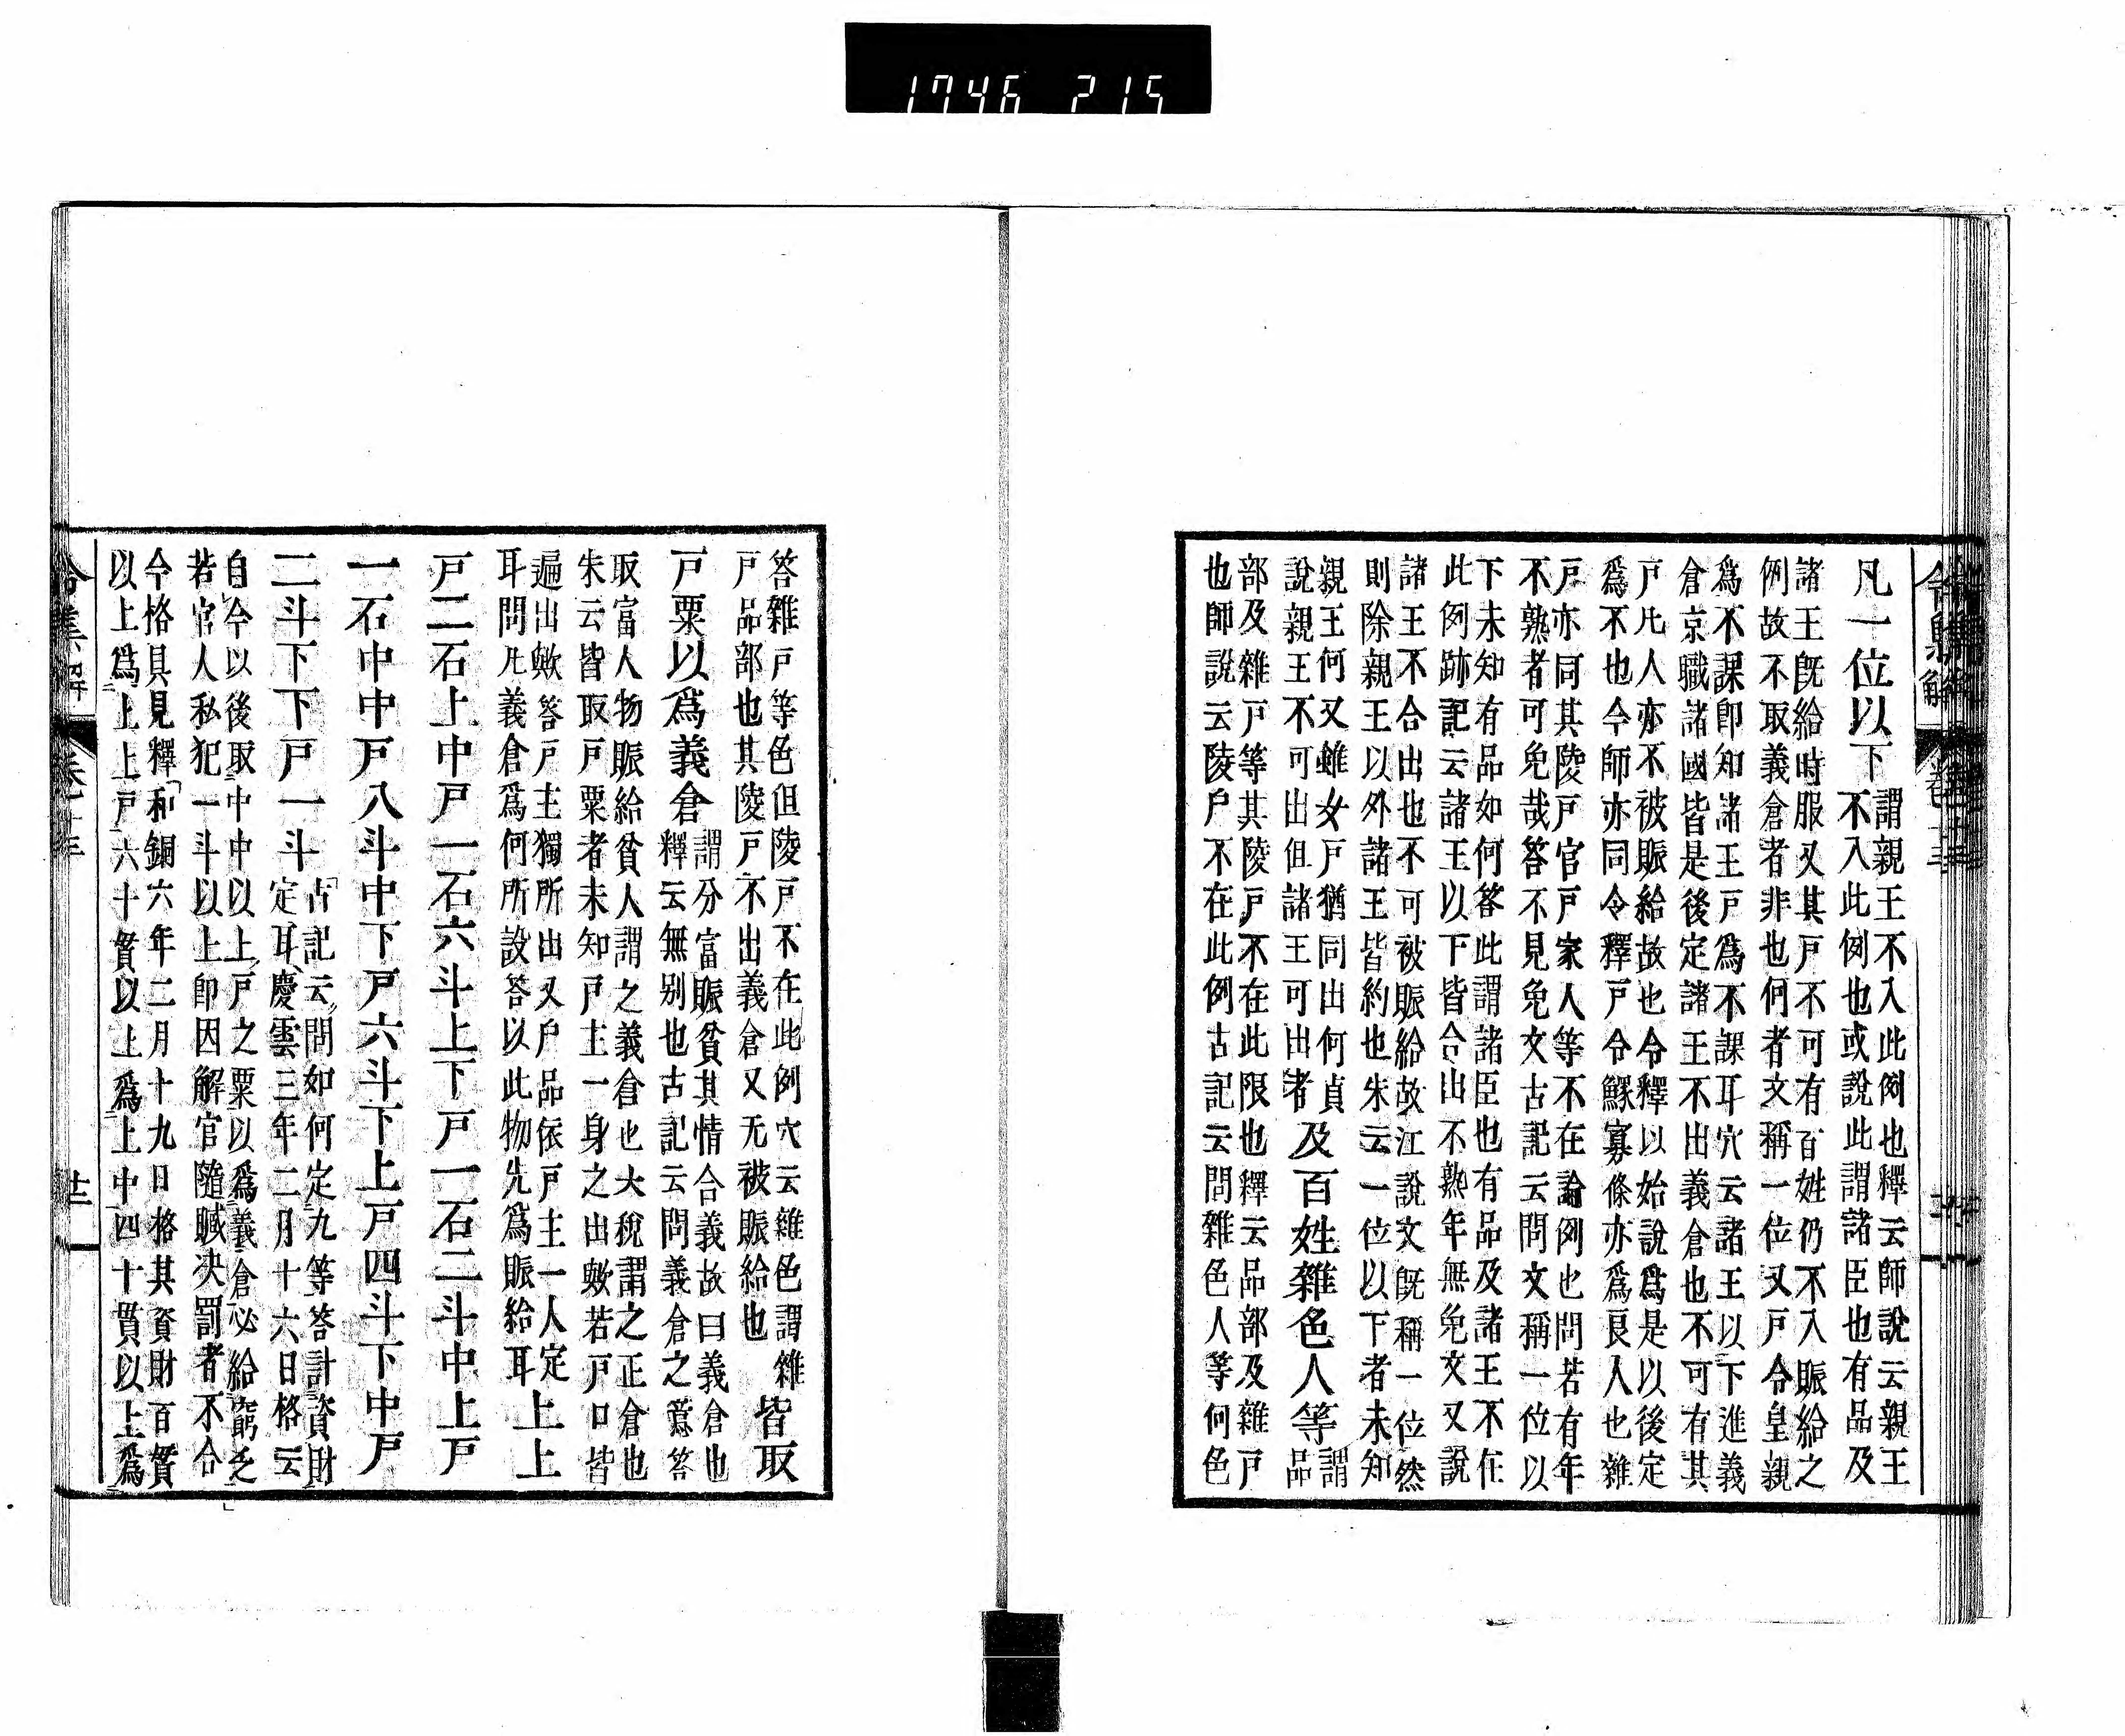 1746 215
凡一位以下
謂親王不入此例也釋云師說云親王
不入此例也或說此謂諸臣也有品及
諸王旣給時服又其戶不可有百姓仍不入賑給之
例故不取義倉者非也何者文稱一位又戶令皇親
爲不課卽知諸王戶爲不課耳穴云諸王以下進義
倉京職諸國皆是後定諸王不出義倉也不可有其
戶凡人亦不被賑給故也令釋以始說爲是以後定
爲不也今師亦同令釋戶令鰥寡條亦爲良人也雜
戶亦同其陵戶官戶家人等不在論例也問若有年
不熟者可免哉答不見免文古記云問文稱一位以
下未知有品如何答此謂諸臣也有品及諸王不在
此例跡記云諸王以下皆合出不熟年無免文又說
諸王不合出也不可被賑給故江說文旣稱一位然
則除親王以外諸王皆約也朱云一位以下者未知
親王何又雖女戶猶同出何貞
說親王不可出但諸王可出者
及百姓雜色人等
謂
品
部及雜戶等其陵戶不在此限也釋云品部及雜戶
也師說云陵戶不在此例古記云問雜色人等何色
答雜戶等色但陵戶不在此例穴云雜色謂雜
戶品部也其陵戶不出義倉又无被賑給也
皆取
戶粟以爲義倉
謂分富賑貧其情合義故曰義倉也
釋云無別也古記云問義倉之意答
取富人物賑給貧人謂之義倉也大稅謂之正倉也
朱云皆取戶粟者未知戶主一身之出歟若戶口皆
遍出歟答戶主獨所出又戶品依戶主一人定
耳問凡義倉爲何所設答以此物先爲賑給耳
上上
戶二石上中戶一石六斗上下戶一石二斗中上戶
一石中中戶八斗中下戶六斗下上戶四斗下中戶
二斗下下戶一斗
古記云問如何定九等答計資財
定耳慶雲三年二月十六日格云
自今以後取中中以上戶之粟以爲義倉必給窮乏
若官人私犯一斗以上卽因解官隨贓決罰者不合
今格具見釋和銅六年二月十九日格其資財百貫
以上爲上上戶六十貫以上爲上中四十貫以上爲